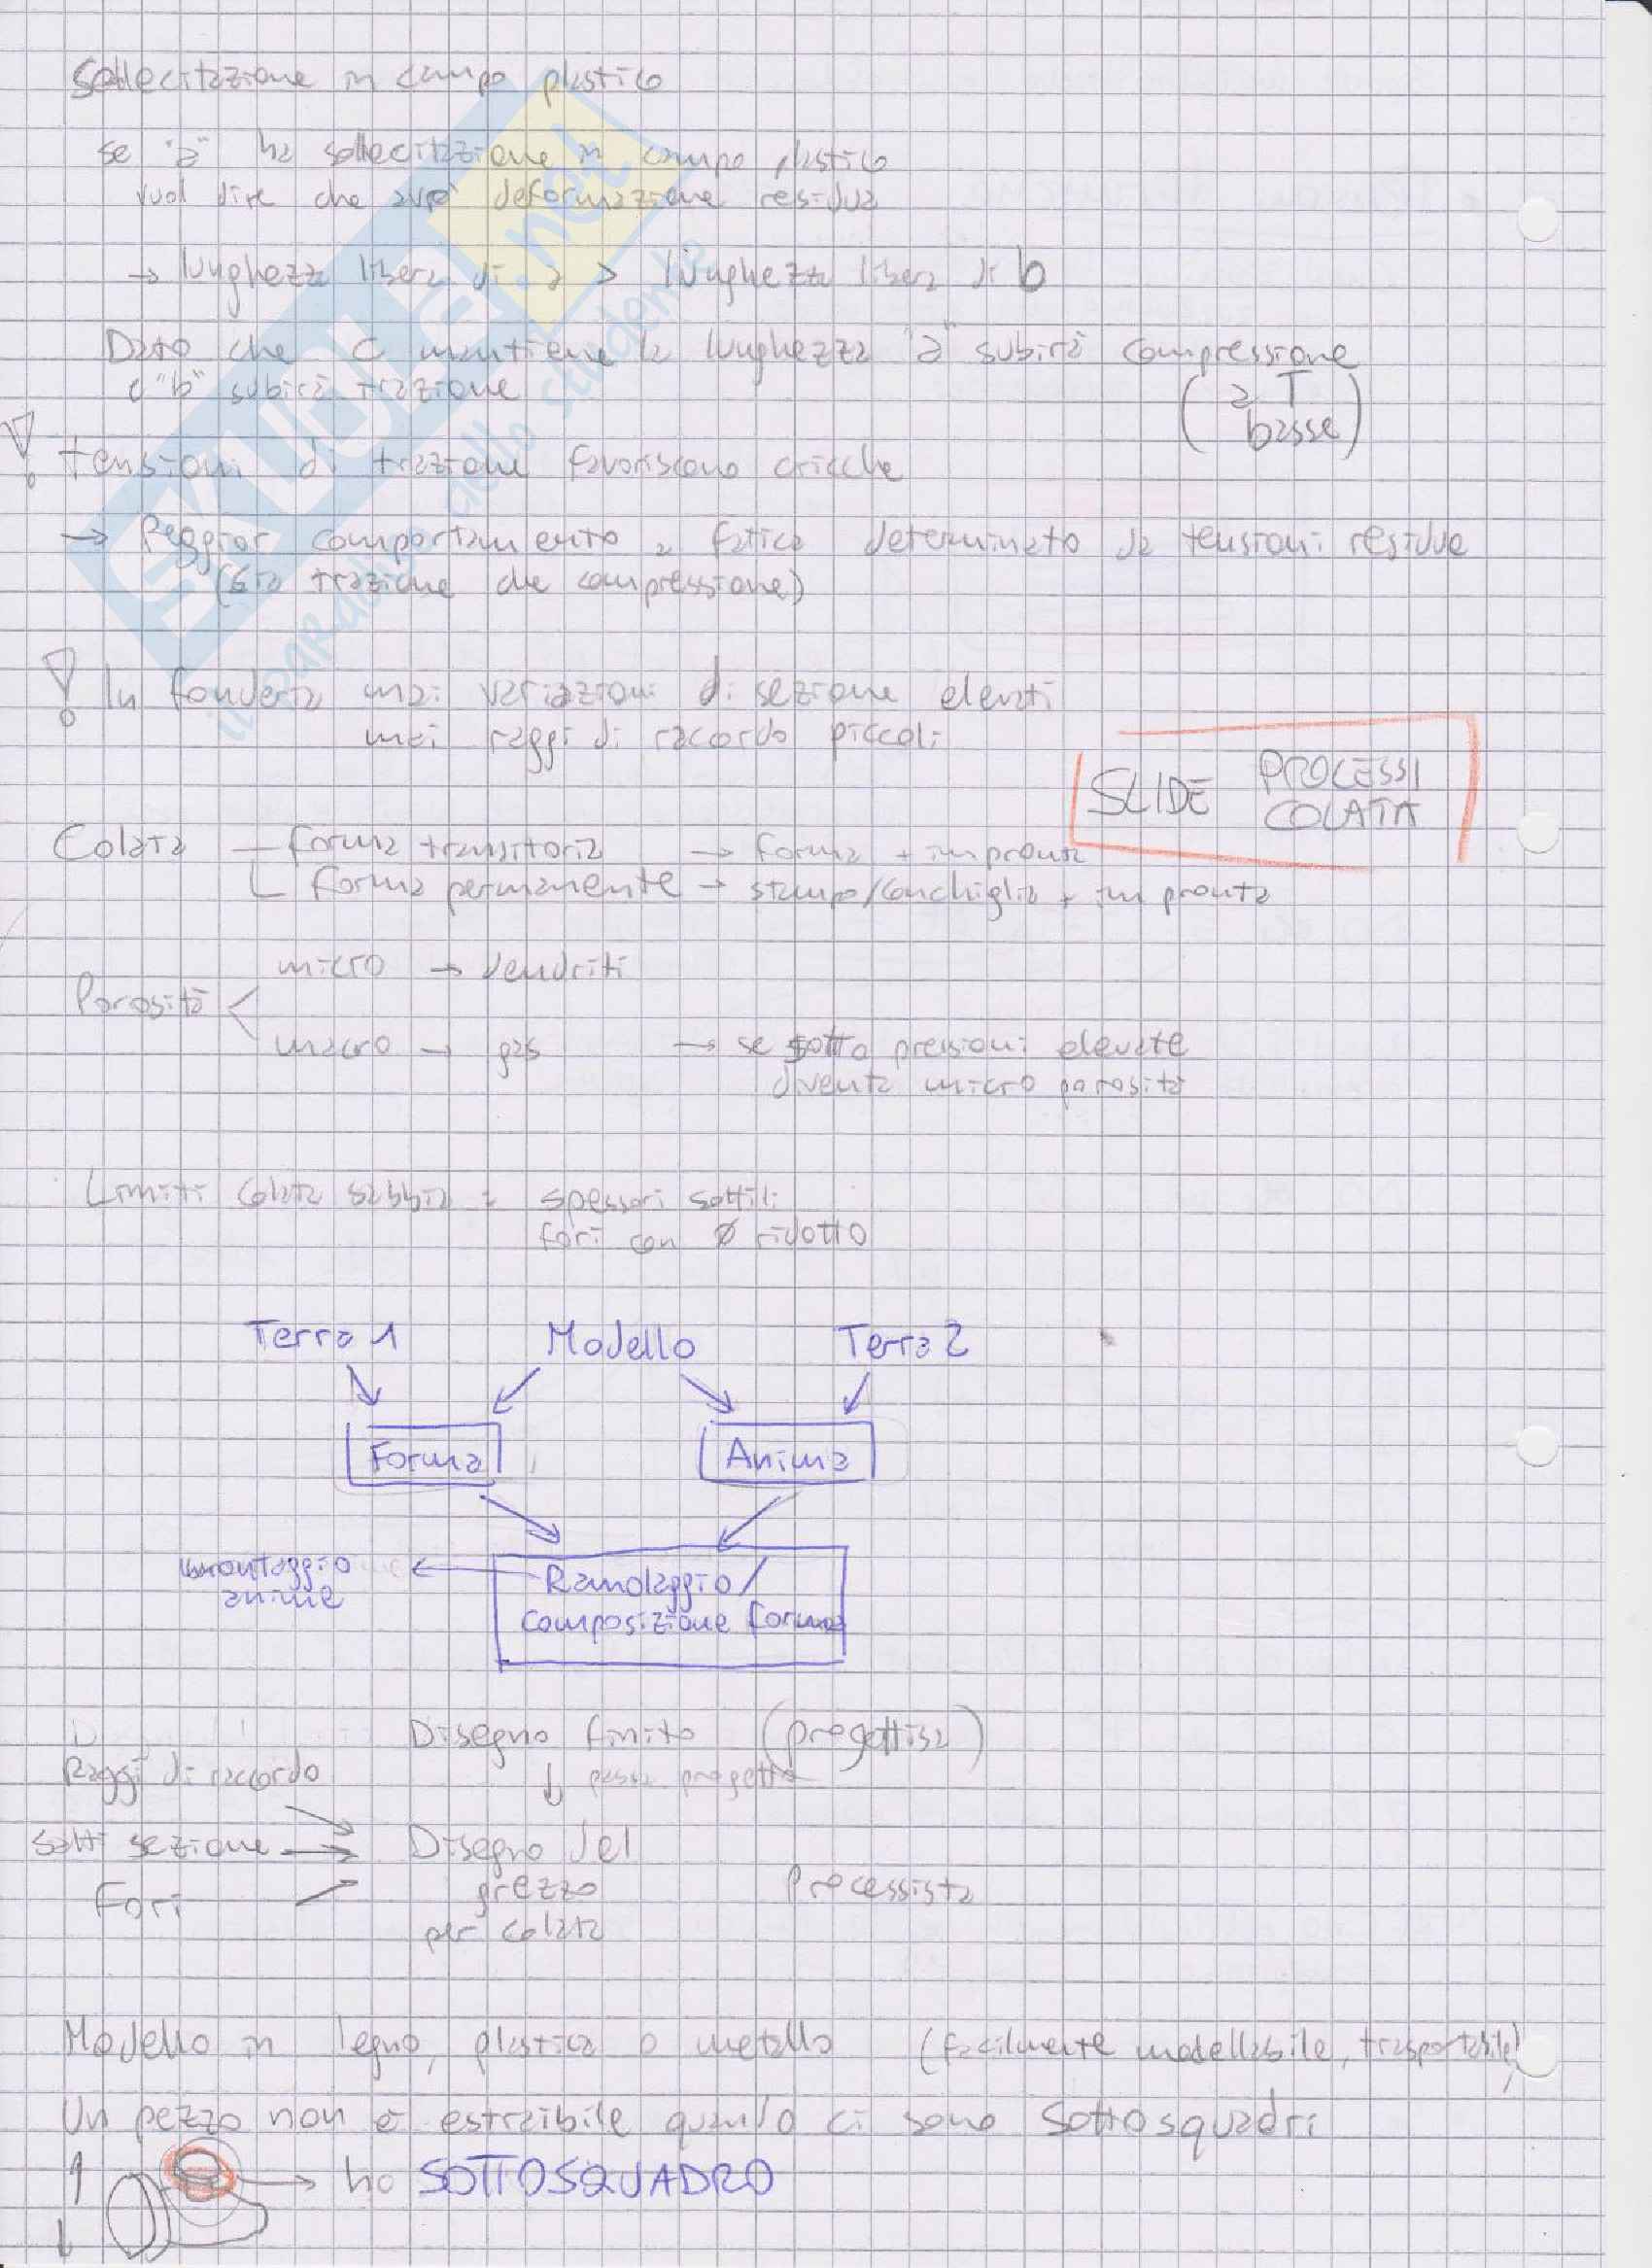 Sollecitazione in campo plastico
se "a" ha sollecitazione in campo plastico
vuol dire che avrà deformazione residua
→ lunghezza libera di a > lunghezza libera di b
Dato che C mantiene la lunghezza "a" subirà compressione
e "b" subirà trazione
(a T basse)
! tensioni di trazione favoriscono cricche
→ Peggior comportamento a fatica determinato da tensioni residue
(sia trazione che compressione)
! In fonderia mai variazioni di sezione elevati
mai raggi di raccordo piccoli
SLIDE PROCESSI COLATA
Colata – forma transitoria → forma + impronta
forma permanente → stampo/conchiglia + impronta
micro → dendriti
Porosità <
macro → gas → se sotto pressioni elevate
diventa micro porosità
Limiti colata sabbia = spessori sottili
fori con Ø ridotto
Terra 1 Modello Terra 2
Forma Anima
ramontaggio anime ← Ramolaggio/
composizione forma
Disegno finito (progettista)
Raggi di raccordo ↓ passa progetto
sezione → Disegno del
Fori grezzo Processista
per colata
Modello in legno, plastica o metallo (facilmente modellabile, trasportabile)
Un pezzo non è estraibile quando ci sono Sottosquadri
→ ho SOTTOSQUADRO
SKUOLA.net
il paradiso dello studente